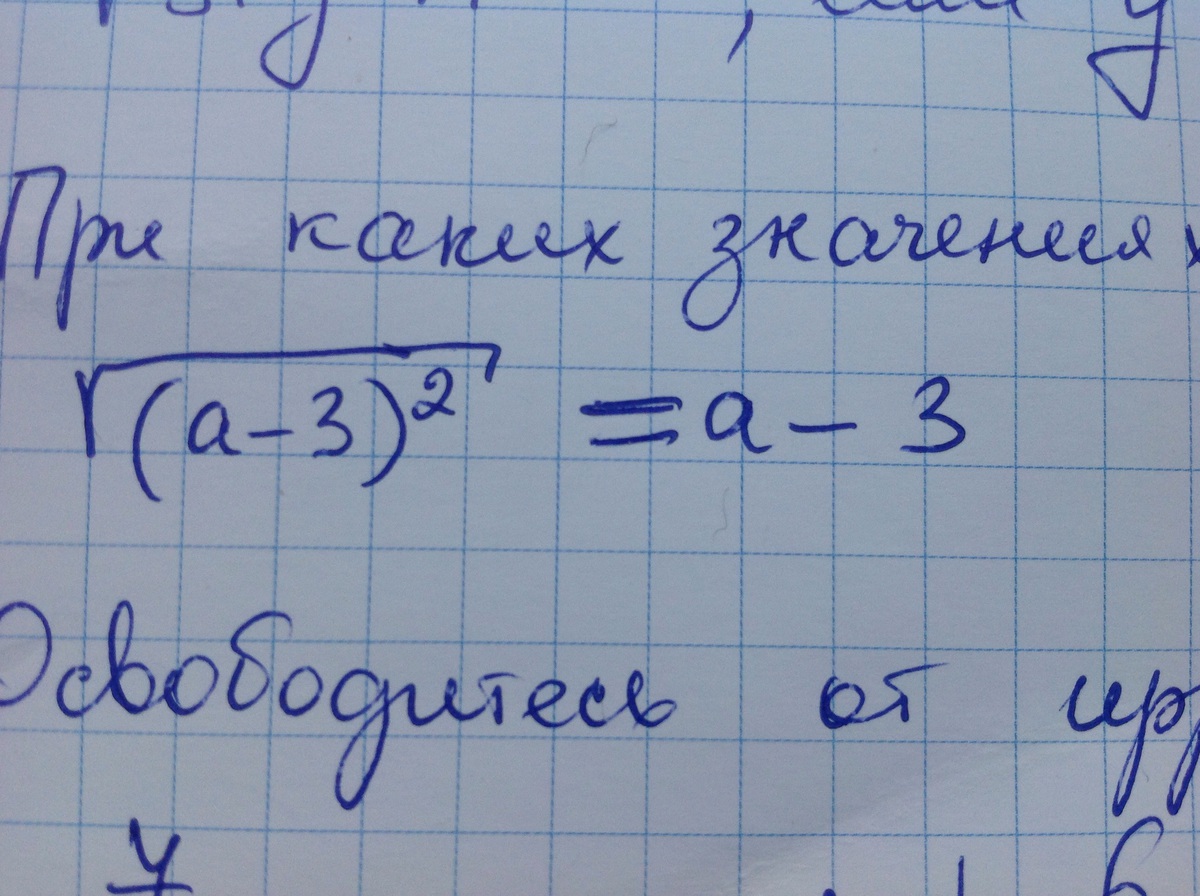 При каких значениях
√(a-3)² = a - 3
Освободитесь от